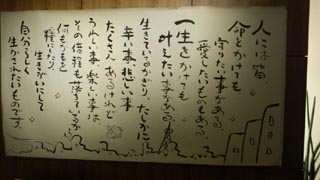 人には皆
命とかけても
守りたい事がある
愛したいものもある。
一生をかけても
叶えたい事がある
生きているのがどり たしかに
辛い事、悲しい事
たくさん あるけれど
うれしい事 楽しい事は
その倍程も落ちているから
何もかもを
糧にしたり、
生きがいにして
自分らしく
生かされたいものです。